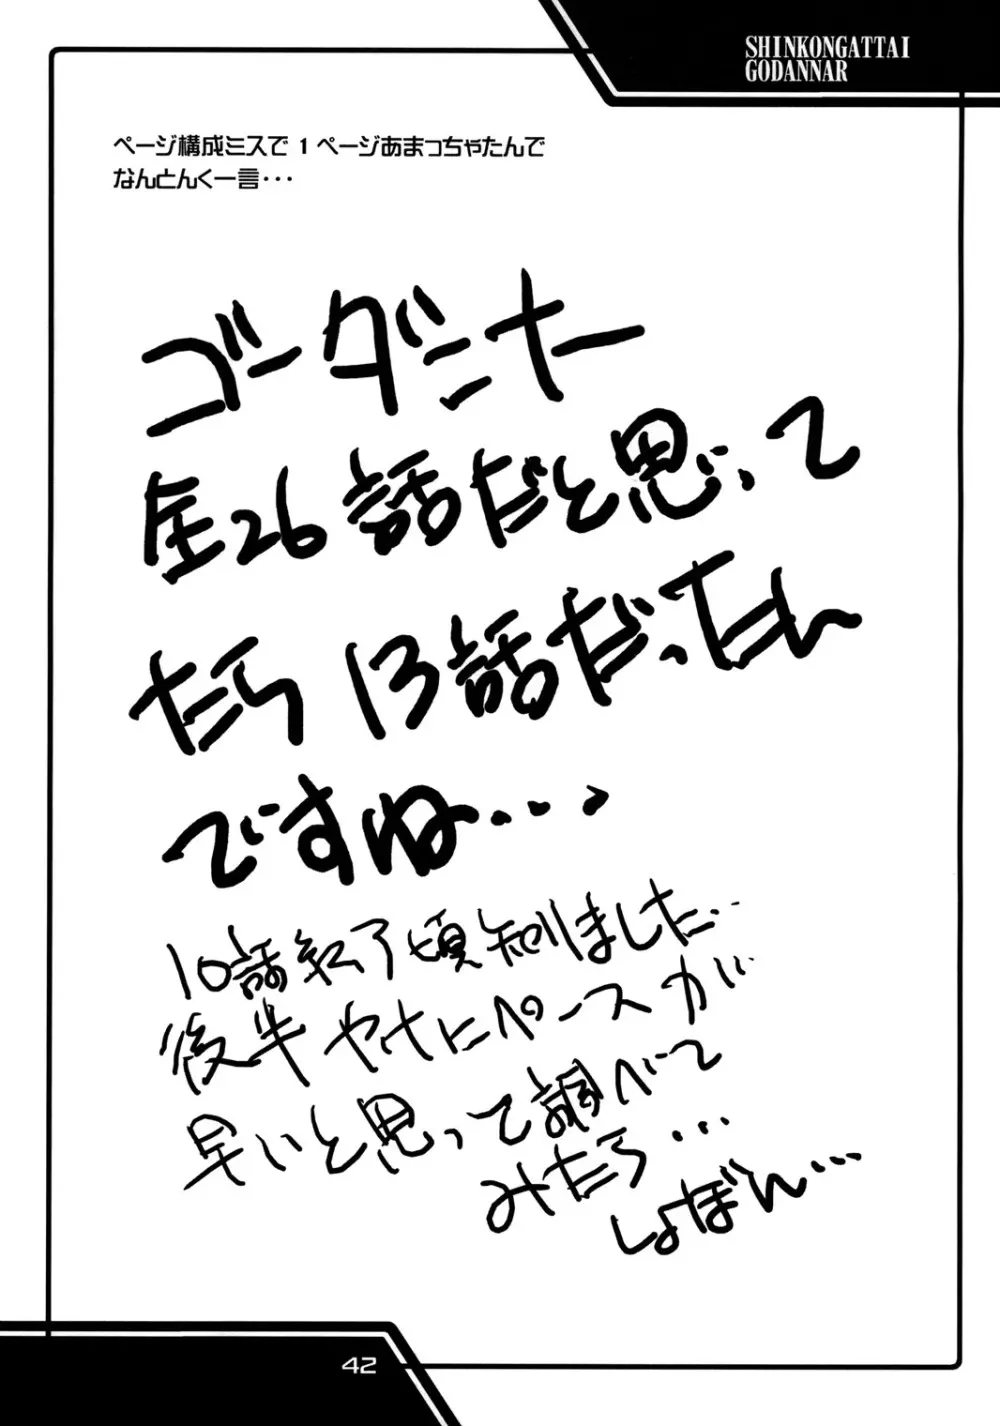 SHINKONGATTAI
GODANNAR
ページ構成ミスで 1 ページあまっちゃたんで
なんとんく一言・・・
ゴーダンナー
全26話だと思って
たら 13話だったん
ですね・・・、
10話終了頃知りました…
後半やけにペースが
早いと思って調べて
みたら・・・
しょぼん・・・
42